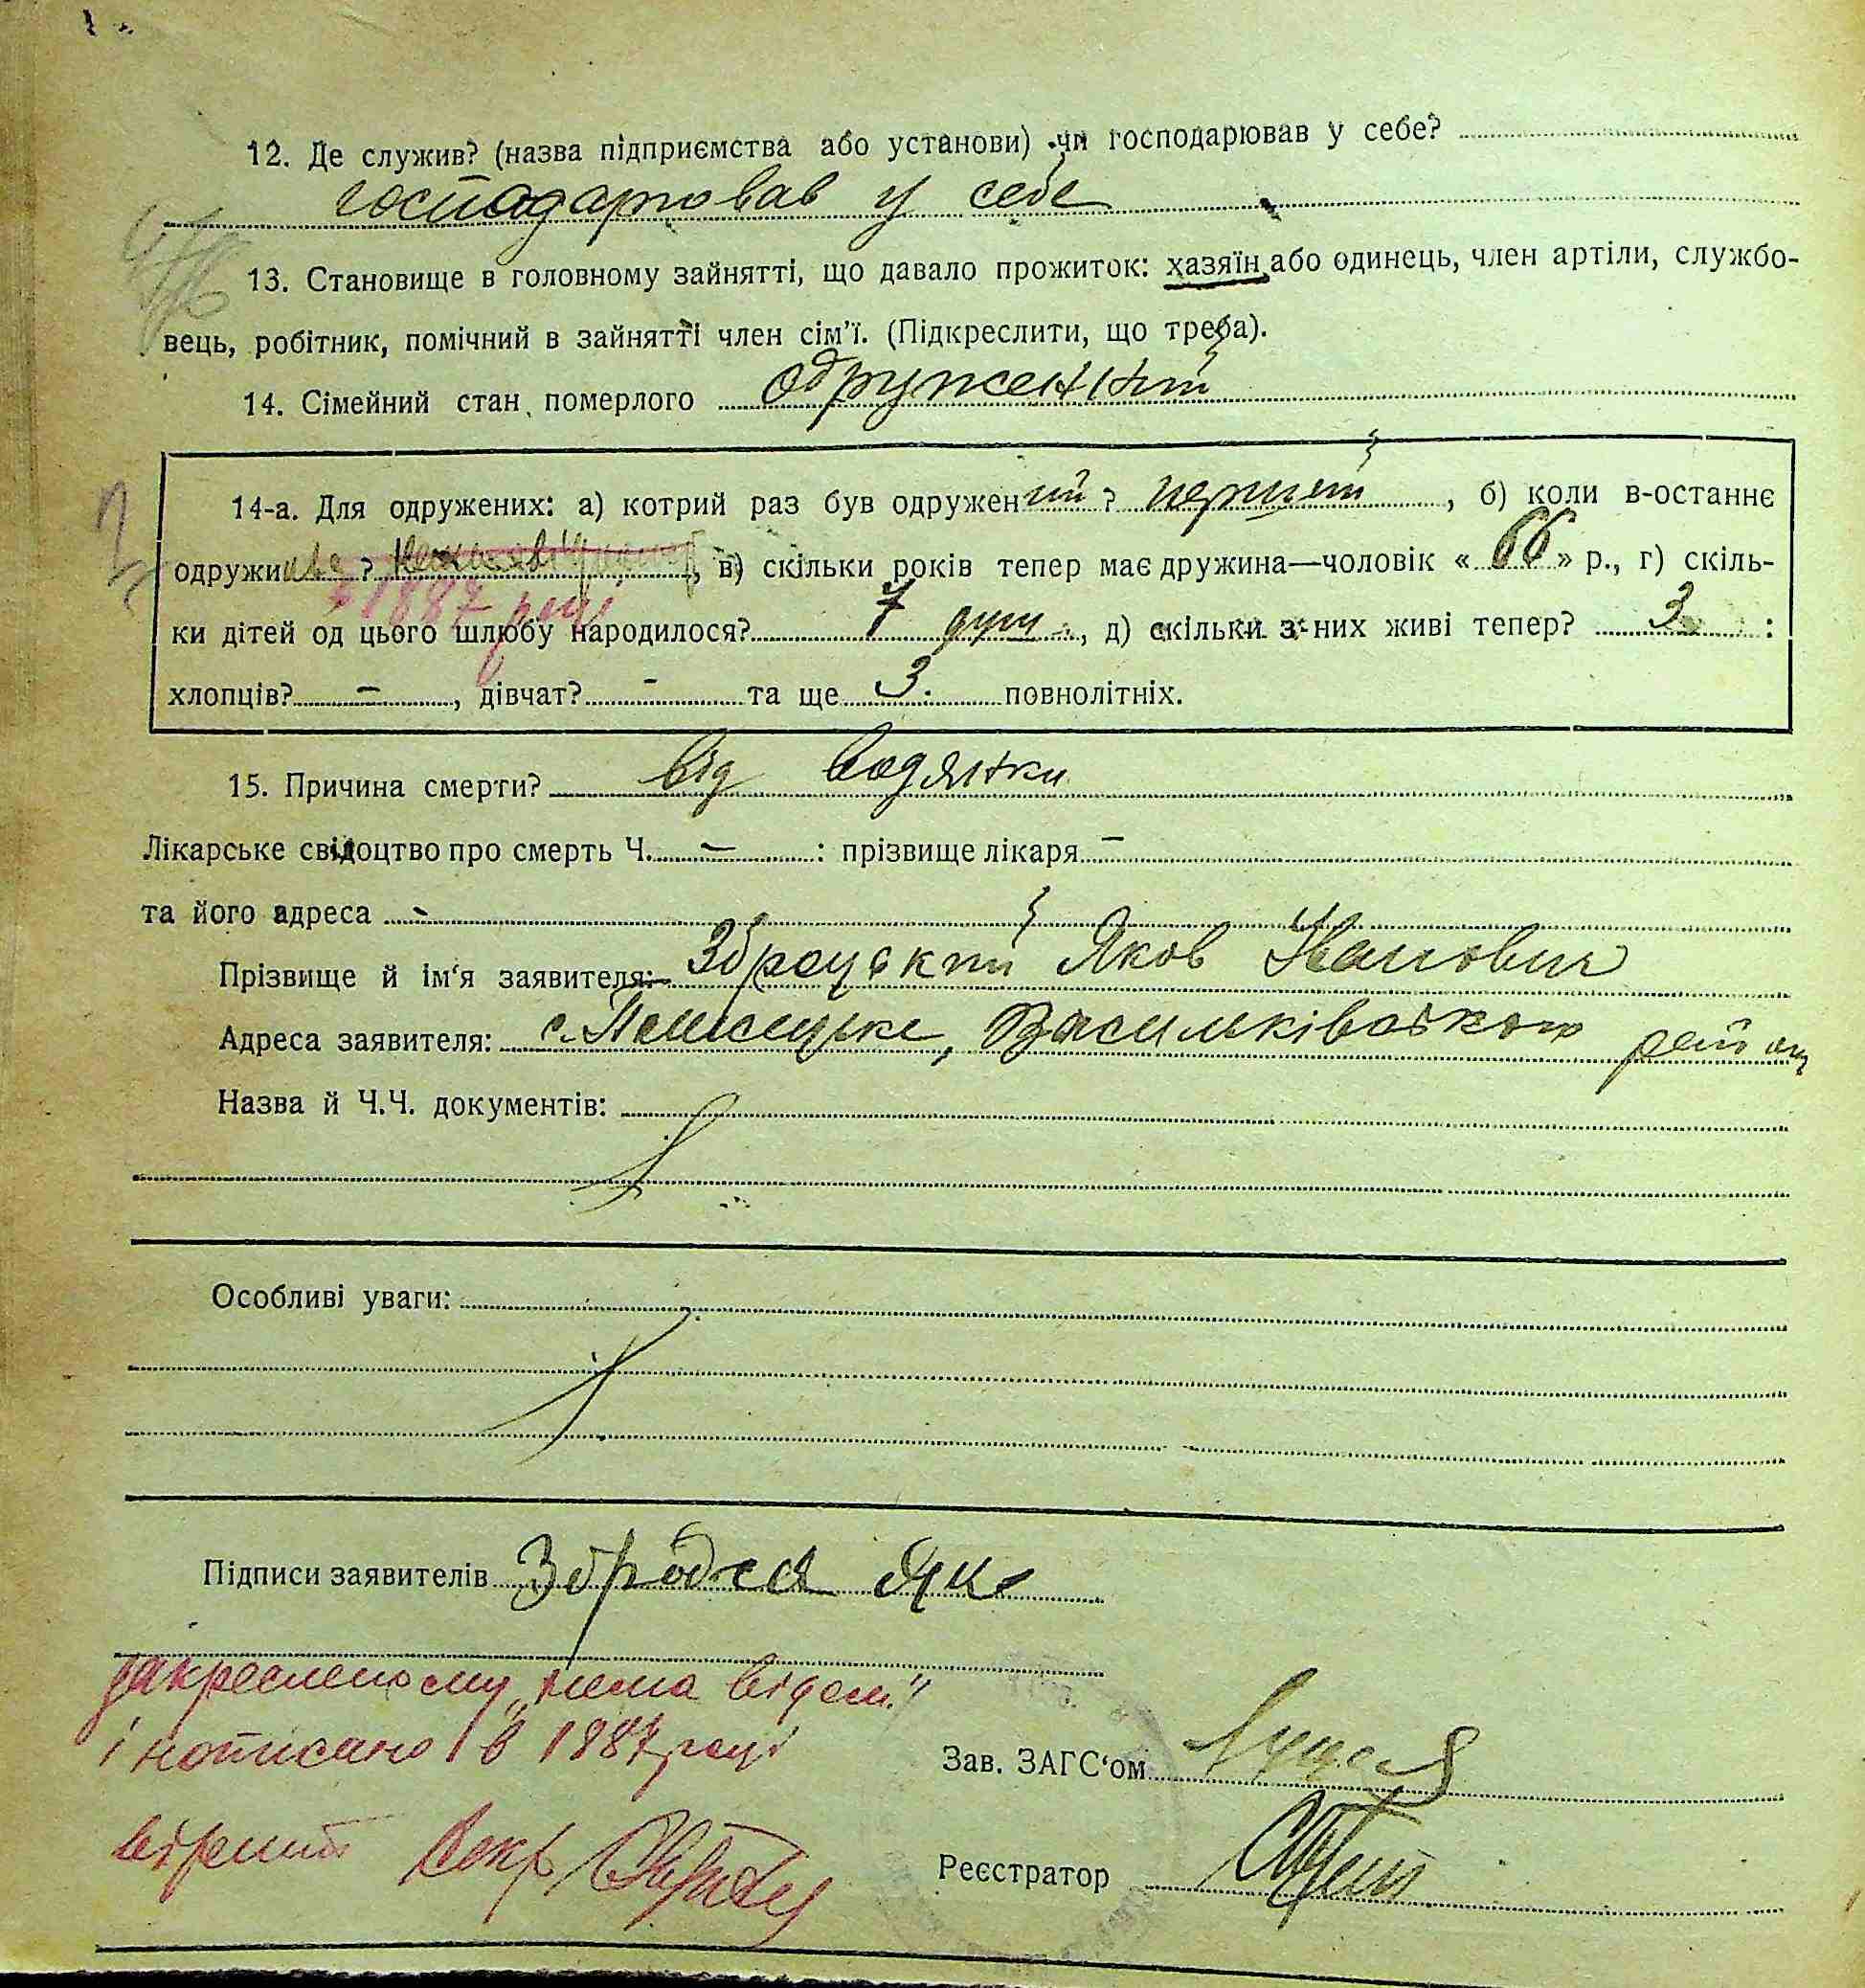 12. Де служив? (назва підприємства або установи) чи господарював у себе?
господарював у себе
13. Становище в головному зайнятті, що давало прожиток: хазяїн або одинець, член артіли, службо-
вець, робітник, помічний в зайнятті член сім'ї. (Підкреслити, що треба).
14. Сімейний стан померлого одружений
14-а. Для одружених: а) котрий раз був одружений? перший, б) коли в-останнє
одружи ? в) скільки років тепер має дружина—чоловік « 66 » р., г) скіль-
в 1887 році
ки дітей од цього шлюбу народилося? 7 душ, д) скільки з них живі тепер? 3 :
хлопців? –, дівчат? - та ще 3. повнолітніх.
15. Причина смерти? від водянки
Лікарське свідоцтво про смерть Ч. – : прізвище лікаря –
та його адреса -
Прізвище й ім'я заявителя: Яков Іванович
Адреса заявителя: с. Васильківського району
Назва й Ч.Ч. документів:
Особливі уваги:
Підписи заявителів
закресленому „нема відом."
і написано в 1887 році
вірити Секр
Зав. ЗАГС'ом
Реєстратор